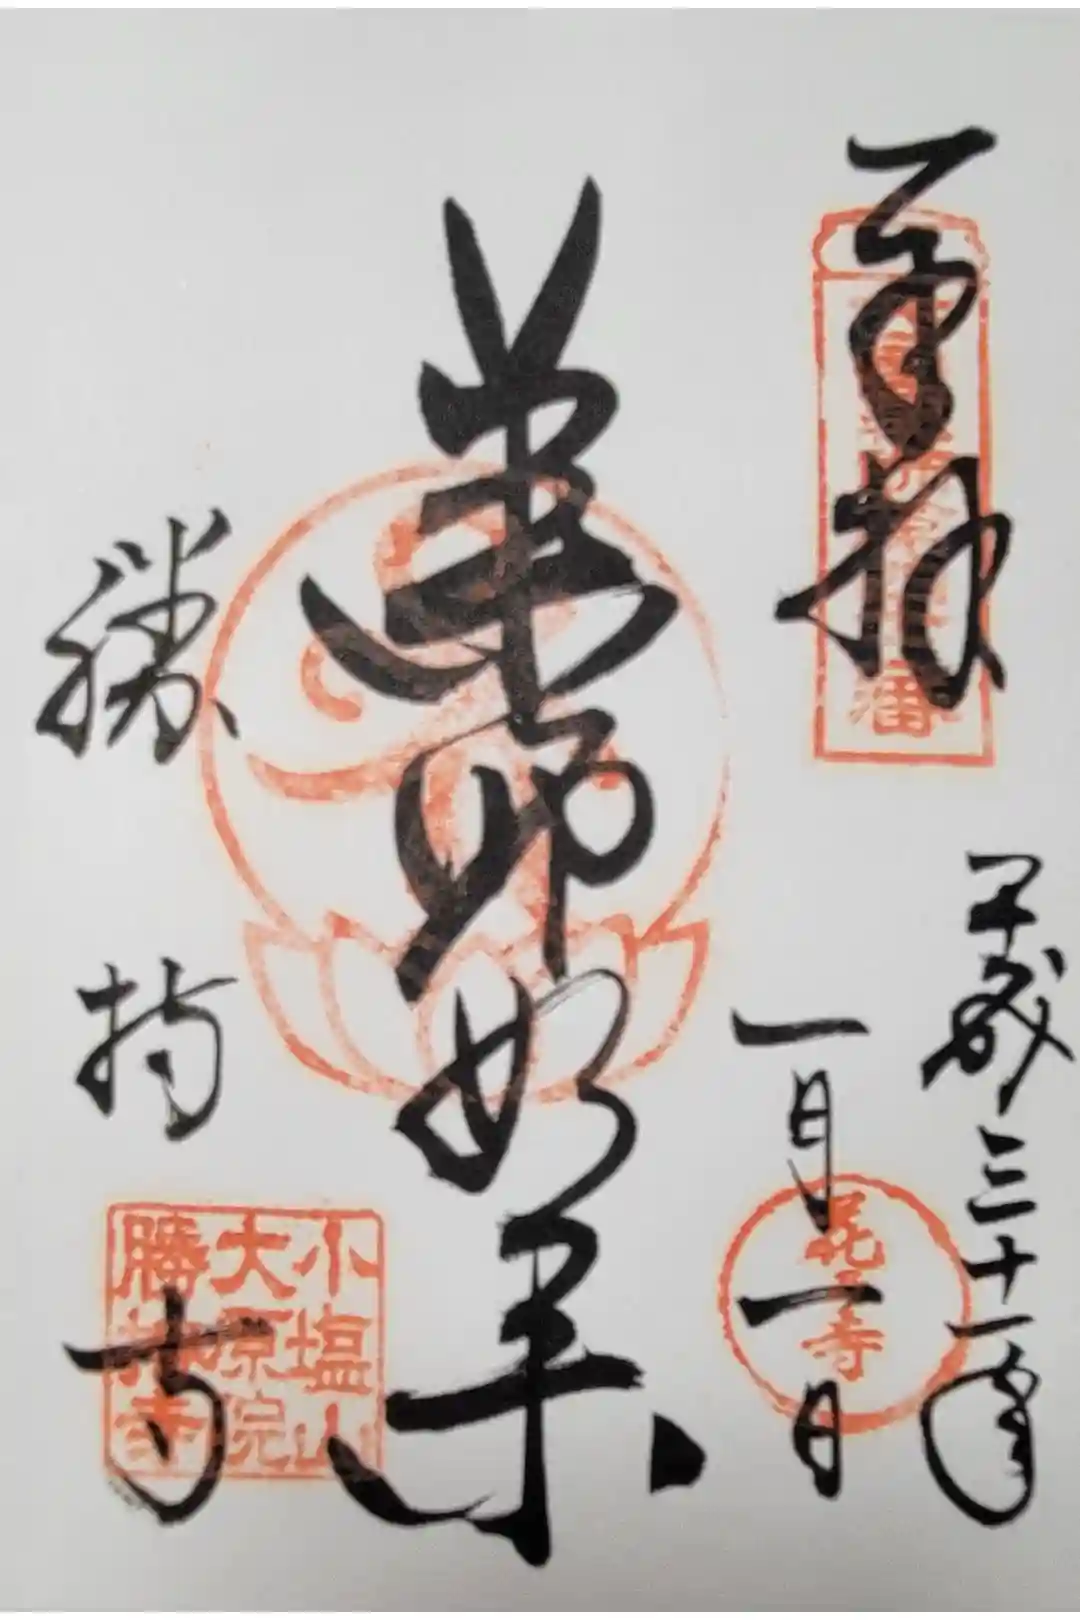 奉拝
平成三十一年
一月一日
花の寺
薬師如来
勝持寺
小塩山
大原院
勝持寺